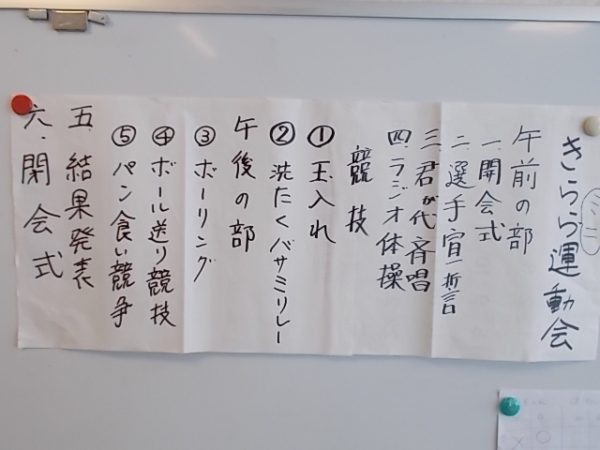 きらら運動会
ミニ
午前の部
一、開会式
二、選手宣誓
三、君が代斉唱
四、ラジオ体操
競技
①玉入れ
②洗たくバサミリレー
午後の部
③ボーリング
④ボール送り競技
⑤パン食い競争
五、結果発表
六、閉会式